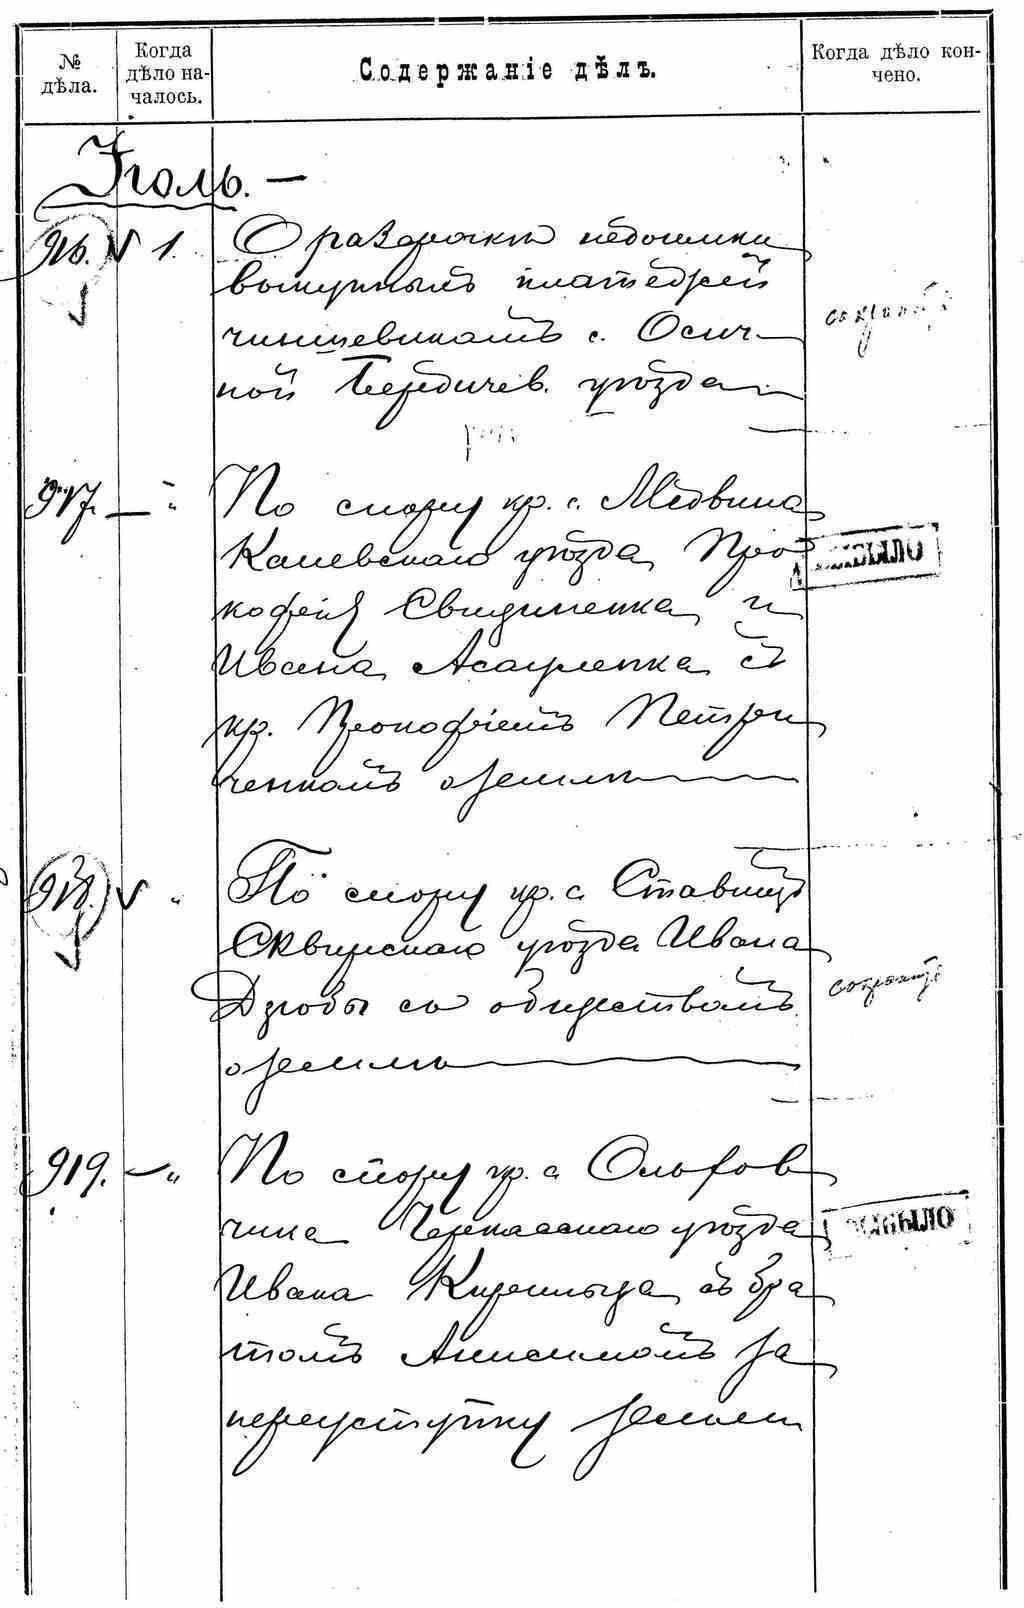 № дѣла.
Когда дѣло на-
чалось.
Содержаніе дѣлъ.
Когда дѣло кон-
чено.
Іюль. —
916. V 1. О разсрочкѣ недоимки
выкупныхъ платежей
чиншевикамъ с. Осич-
ной Бердичев. уѣзда
917. — " По спору кр. с. Медвина
Каневскаго уѣзда Про-
кофія Свириденка и
Ивана Асауленка съ
кр. Прокофіемъ Петри-
ченкомъ о землѣ
ВЫБЫЛО
918. V " По спору кр. с. Ставищъ
Сквирскаго уѣзда Ивана
Дзюбы со обществомъ
о землѣ
919. — " По спору кр. с. Ольхов-
чика Черкасскаго уѣзда
Ивана Кирильца съ бра-
томъ Анисимомъ за
переуступку земли
ВЫБЫЛО